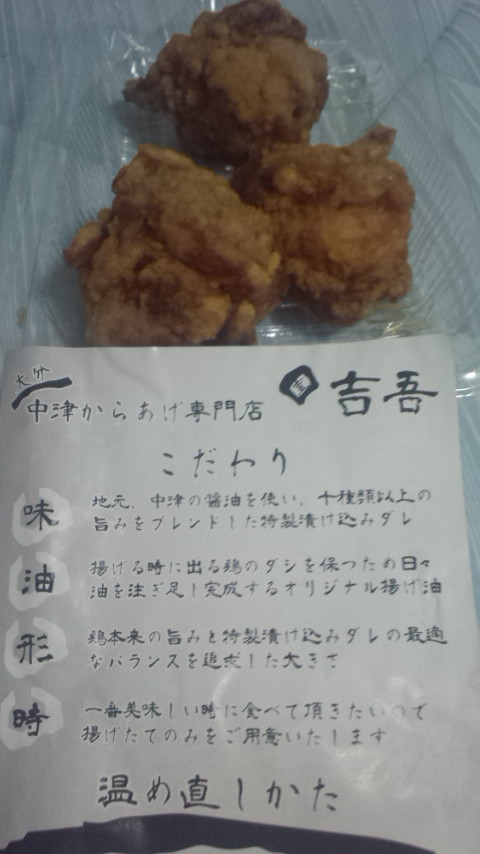 大分
中津からあげ専門店
吉吾
こだわり
味
地元、中津の醤油を使い、十種類以上の
旨みをブレンドした特製漬け込みダレ
油
揚げる時に出る鶏のダシを保つため日々
油を注ぎ足し完成するオリジナル揚げ油
形
鶏本来の旨みと特製漬け込みダレの最適
なバランスを追求した大きさ
時
一番美味しい時に食べて頂きたいので
揚げたてのみをご用意いたします
温め直しかた